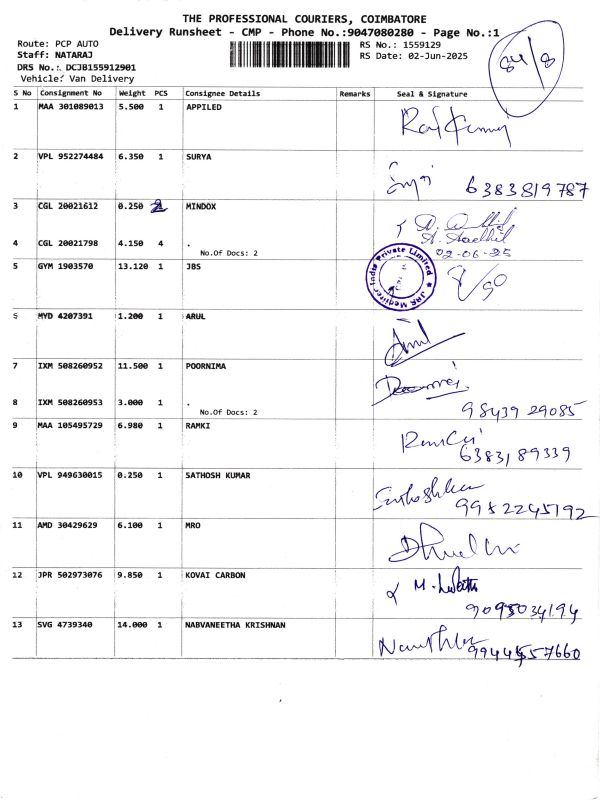 THE PROFESSIONAL COURIERS, COIMBATORE
Delivery Runsheet - CMP - Phone No.:9047080280 - Page No.:1
Route: PCP AUTO
RS No.: 1559129
Staff: NATARAJ
RS Date: 02-Jun-2025
DRS No.: DCJB155912901
Vehicle: Van Delivery
84/8
S No Consignment No Weight PCS Consignee Details Remarks Seal & Signature
1 MAA 301089013 5.500 1 APPILED
2 VPL 952274484 6.350 1 SURYA
6383819787
3 CGL 20021612 0.250 2 MINDOX
4 CGL 20021798 4.150 4 .
No.Of Docs: 2
02-06-25
5 GYM 1903570 13.120 1 JBS
India Private Limited
6 MYD 4207391 1.200 1 ARUL
7 IXM 508260952 11.500 1 POORNIMA
8 IXM 508260953 3.000 1 .
No.Of Docs: 2
98439 29085
9 MAA 105495729 6.980 1 RAMKI
6383189339
10 VPL 949630015 0.250 1 SATHOSH KUMAR
9952245192
11 AMD 30429629 6.100 1 MRO
12 JPR 502973076 9.850 1 KOVAI CARBON
9095034194
13 SVG 4739340 14.000 1 NABVANEETHA KRISHNAN